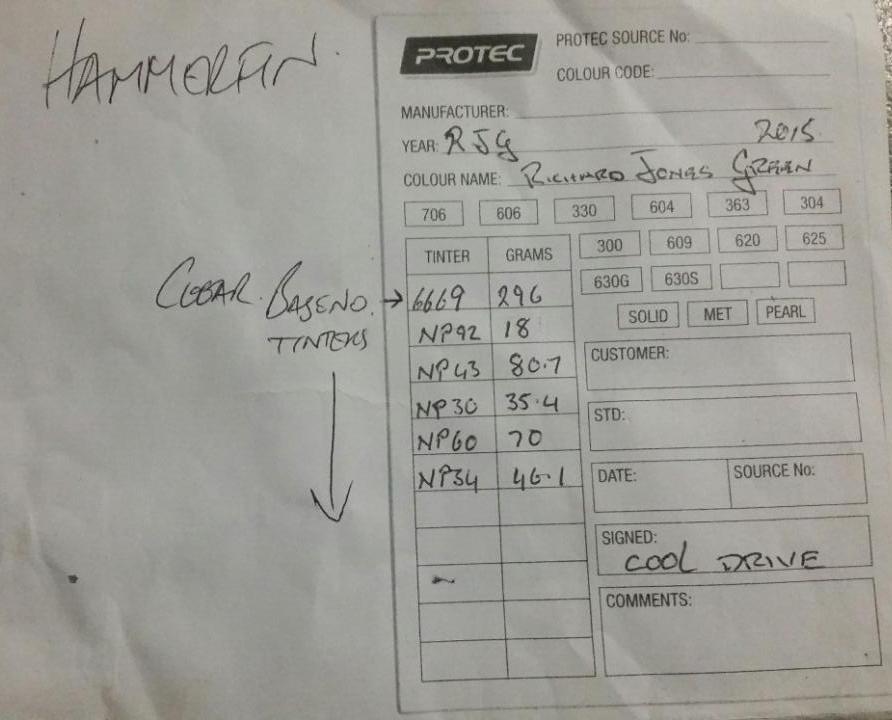 HAMMERFIN.
PROTEC
PROTEC SOURCE No:
COLOUR CODE:
MANUFACTURER:
YEAR: RJG 2015
COLOUR NAME: RICHARD JONES GREEN
706 606 330 604 363 304
300 609 620 625
630G 630S
SOLID MET PEARL
TINTER GRAMS
6669 296
NP92 18
NP43 80.7
NP30 35.4
NP60 70
NP34 46.1
BASE NO.
TINTERS
CUSTOMER:
STD:
DATE: SOURCE No:
SIGNED:
COOL DRIVE
COMMENTS: